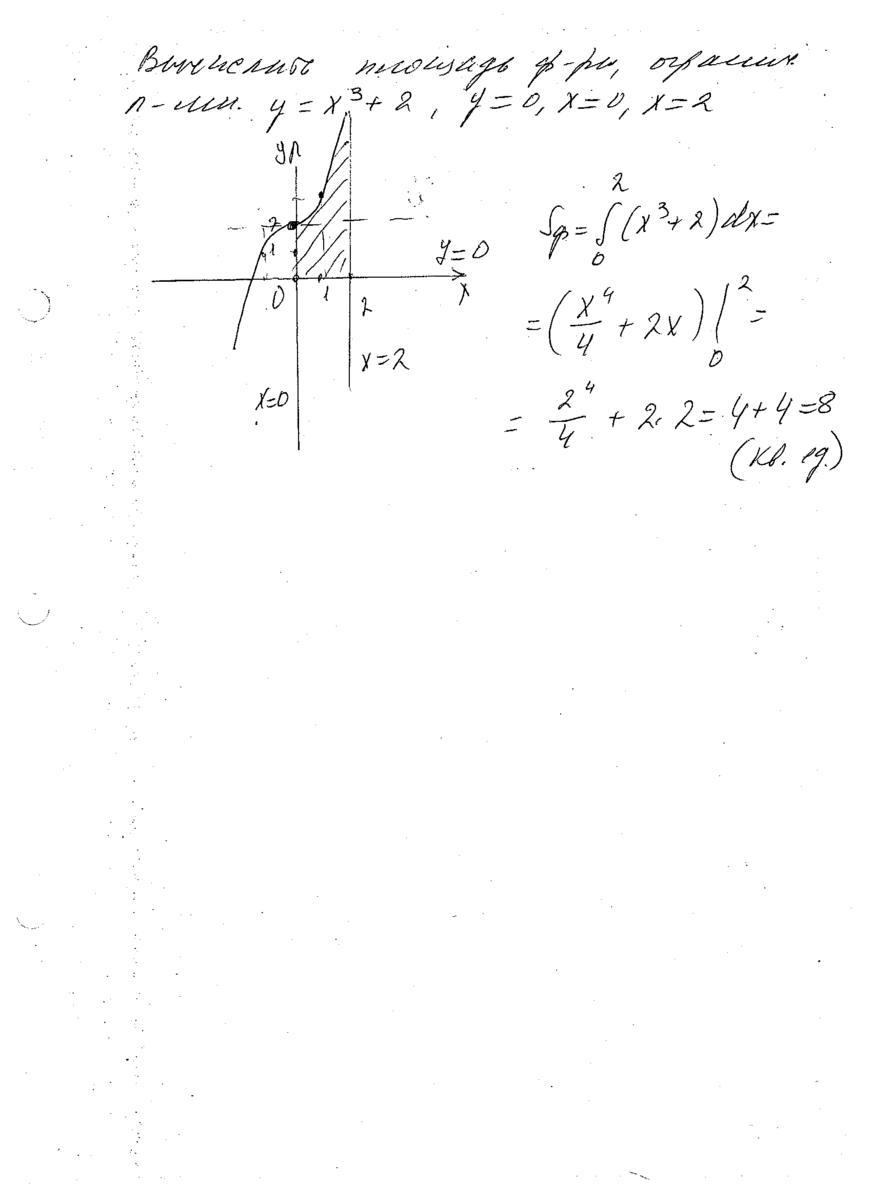 Вычислить площадь ф-ры, огранич.
л-ми. y = x³ + 2, y = 0, x = 0, x = 2
y
2
1
y = 0
0 1 2 x
x = 2
x = 0
Sф = ∫₀² (x³ + 2) dx =
= (x⁴/4 + 2x) |₀² =
= 2⁴/4 + 2 · 2 = 4 + 4 = 8
(кв. ед.)